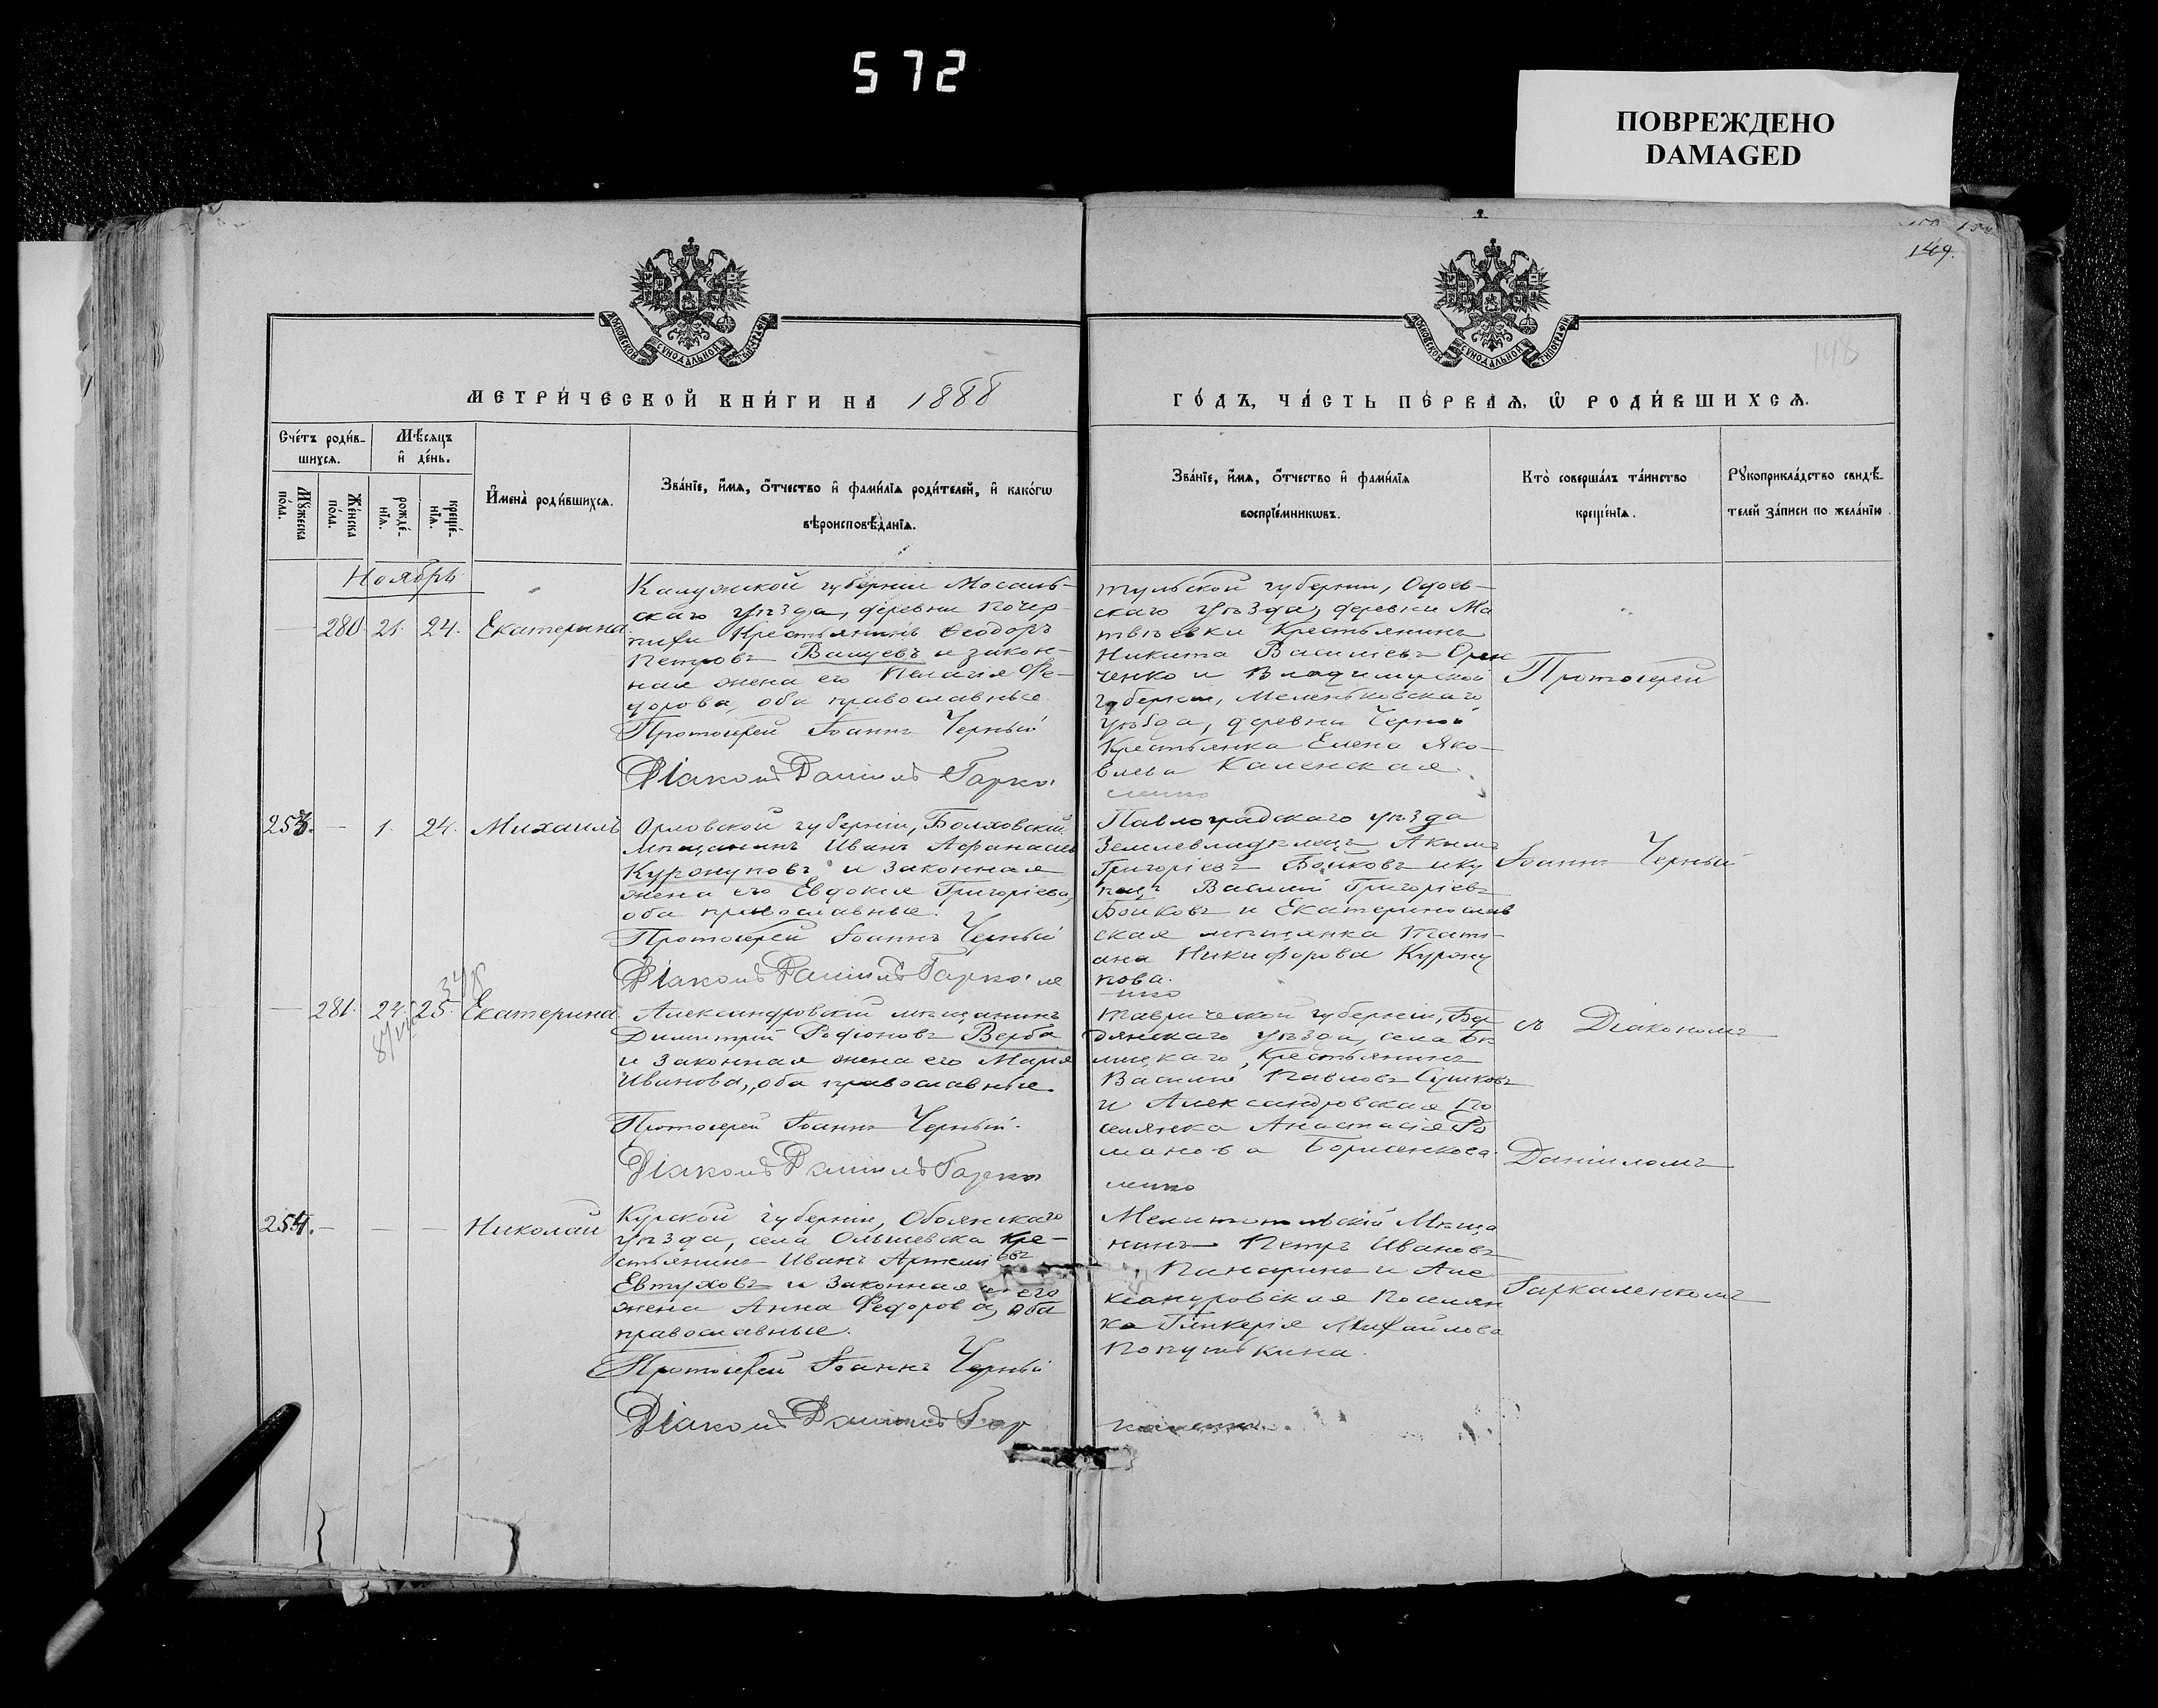 572
ПОВРЕЖДЕНО
DAMAGED
149.
148
МОСКОВСКОЙ СУНОДАЛЬНОЙ ТИПОГРАФІИ
МОСКОВСКОЙ СУНОДАЛЬНОЙ ТИПОГРАФІИ
МЕТРИ́ЧЕСКОЙ КНИ́ГИ НА 1888
ГО́ДЪ, ЧА́СТЬ ПЕ́РВАЯ, Ѡ РОДИ́ВШИХСЯ.
Сче́тъ роди́в-
шихся.
Мꙋ́жеска по́ла.
Же́нска по́ла.
Мѣ́сяцъ
и де́нь.
рожде́-
нїя.
креще́-
нїя.
Имена̀ роди́вшихся.
Зва́нїе, и́мя, о́тчество и фами́лїя роди́телей, и како́гѡ
вѣроисповѣ́данїя.
Зва́нїе, и́мя, о́тчество и фами́лїя
воспрїе́мникѡвъ.
Кто̀ соверша́лъ та́инство
креще́нїя.
Рꙋкоприкла́дство свидѣ́-
телей за́писи по жела́нїю.
Ноябрь
— 280. 21. 24. Екатерина
Калужской губерніи Мосаль-
скаго уѣзда, деревни
Крестьянинъ Ѳеодоръ
Петровъ Валуевъ и закон-
ная жена его Пелагія Ѳе-
дорова, оба православные.
Протоіерей Іоаннъ Черный
Діаконъ Даніилъ Гарка
Тульской губерніи, Одоев-
скаго уѣзда, деревни Ма
твѣевки Крестьянинъ
Никита Васильевъ
ченко и Владимірской
губерніи, Меленковскаго
уѣзда, деревни Черной
Крестьянка Елена Яко-
влева Каленская.
ленко
253. — 1. 24. Михаилъ
Орловской губерніи, Болховскій
мѣщанинъ Иванъ Афанасьевъ
Курочуповъ и законная
жена его Евдокія Григоріева,
оба православные.
Протоіерей Іоаннъ Черный
Діаконъ Даніилъ Гарка ле
Павлоградскаго уѣзда
Землевладѣлецъ Акимъ
Григоріевъ Бойковъ и ку
пецъ Василій Григоріевъ
Бойковъ и Екатеринослав
ская мѣщанка Тати-
ана Никифорова Курочу
пова.
нко
— 281. 24. 25. Екатерина
Александровскій мѣщанинъ
Димитрій Родіоновъ Верба
и законная жена его Марія
Иванова, оба православные.
Протоіерей Іоаннъ Черный.
Діаконъ Даніилъ Гарка
Таврической губерніи, Бер
дянскаго уѣзда, села
Крестьянинъ
Василій Павловъ Сушковъ
и Александровская по
селянка Анастасія Ро
манова Борисенкова.
ленко
254. — — — Николай
Курской губерніи, Обоянскаго
уѣзда, села Ольшевска Кре-
стьянинъ Иванъ Артеміевъ
Евтуховъ и законная его
жена Анна Федорова, оба
православные.
Протоіерей Іоаннъ Черный
Діаконъ Даніилъ Гар
Мелитопольскій Мѣща
нинъ Петръ Ивановъ
Панаринъ и Але
ксандровская Поселян
ка Гликерія Михайлова
Попутькина.
каленко
Протоіерей
Іоаннъ Черный
съ Діакономъ
Даніиломъ
Гаркаленкомъ